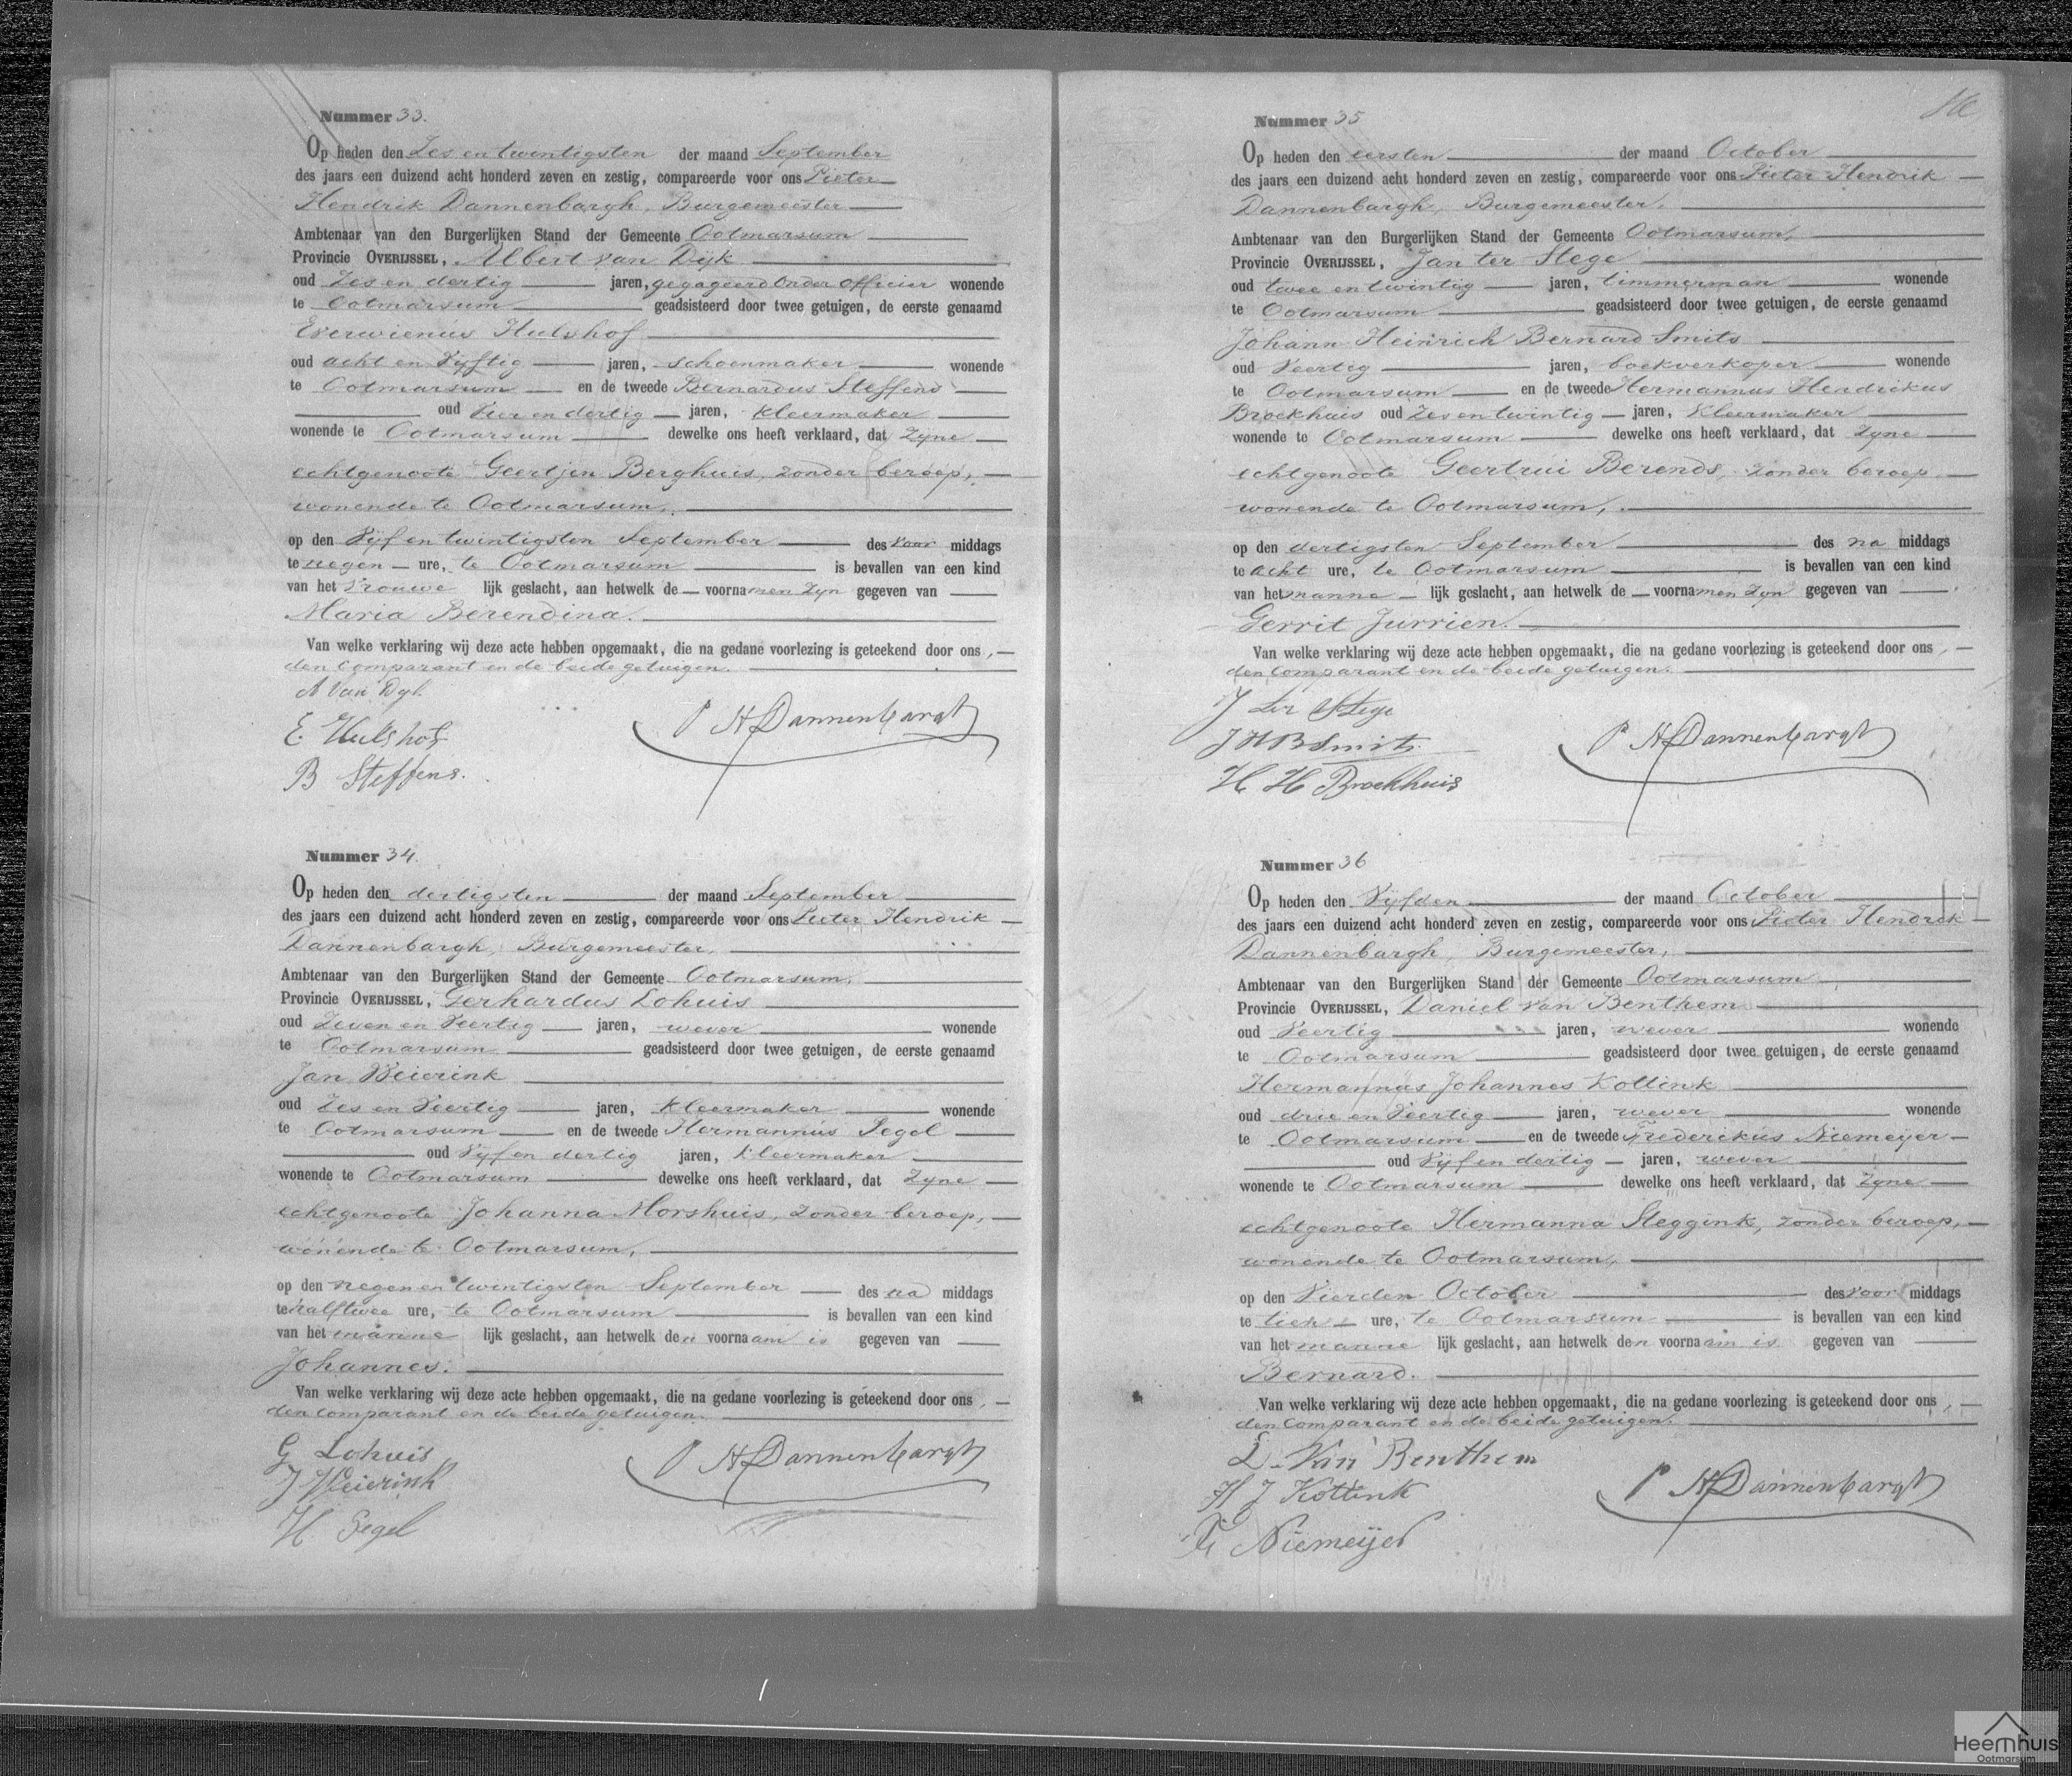 Nummer 33.
Op heden den Zes en twintigsten der maand September
des jaars een duizend acht honderd zeven en zestig, compareerde voor ons Pieter
Hendrik Dannenbargh, Burgemeester
Ambtenaar van den Burgerlijken Stand der Gemeente Ootmarsum
Provincie OVERIJSSEL, Albert van Dijk
oud Zes en dertig jaren, gegageerd Onder Officier wonende
te Ootmarsum geadsisteerd door twee getuigen, de eerste genaamd
Everwienus Hulshof
oud acht en Vijftig jaren, schoenmaker wonende
te Ootmarsum en de tweede Bernardus Steffens
oud Vier en dertig jaren, kleermaker
wonende te Ootmarsum dewelke ons heeft verklaard, dat Zijne
echtgenoote Geertjen Berghuis, zonder beroep,
wonende te Ootmarsum,
op den Vijf en twintigsten September des voor middags
te negen ure, te Ootmarsum is bevallen van een kind
van het Vrouwe lijk geslacht, aan hetwelk de voornamen Zijn gegeven van
Maria Berendina.
Van welke verklaring wij deze acte hebben opgemaakt, die na gedane voorlezing is geteekend door ons,
den Comparant en de beide getuigen.
A Van Dyk
E Hulshof
P H Dannenbargh
B Steffens.
Nummer 34.
Op heden den dertigsten der maand September
des jaars een duizend acht honderd zeven en zestig, compareerde voor ons Pieter Hendrik
Dannenbargh, Burgemeester,
Ambtenaar van den Burgerlijken Stand der Gemeente Ootmarsum,
Provincie OVERIJSSEL, Gerhardus Lohuis
oud Zeven en Veertig jaren, wever wonende
te Ootmarsum geadsisteerd door twee getuigen, de eerste genaamd
Jan Weierink
oud Zes en Veertig jaren, kleermaker wonende
te Ootmarsum en de tweede Hermannus Segel
oud Vijf en dertig jaren, kleermaker
wonende te Ootmarsum dewelke ons heeft verklaard, dat Zijne
echtgenoote Johanna Morshuis, zonder beroep,
wonende te Ootmarsum,
op den negen en twintigsten September des na middags
te half twee ure, te Ootmarsum is bevallen van een kind
van het manne lijk geslacht, aan hetwelk den voornaam is gegeven van
Johannes.
Van welke verklaring wij deze acte hebben opgemaakt, die na gedane voorlezing is geteekend door ons,
den Comparant en de beide getuigen.
G Lohuis
J Weierink
P H Dannenbargh
H Segel
Nummer 35
Op heden den eersten der maand October
des jaars een duizend acht honderd zeven en zestig, compareerde voor ons Pieter Hendrik
Dannenbargh, Burgemeester,
Ambtenaar van den Burgerlijken Stand der Gemeente Ootmarsum,
Provincie OVERIJSSEL, Jan ter Stege
oud twee en twintig jaren, timmerman wonende
te Ootmarsum geadsisteerd door twee getuigen, de eerste genaamd
Johann Heinrich Bernard Smits
oud Veertig jaren, boekverkoper wonende
te Ootmarsum en de tweede Hermannus Hendrikus
Brockhuis oud Zes en twintig jaren, kleermaker
wonende te Ootmarsum dewelke ons heeft verklaard, dat Zijne
echtgenoote Geertrui Berends, zonder beroep,
wonende te Ootmarsum,
op den dertigsten September des na middags
te acht ure, te Ootmarsum is bevallen van een kind
van het manne lijk geslacht, aan hetwelk de voornamen Zijn gegeven van
Gerrit Jurrien.
Van welke verklaring wij deze acte hebben opgemaakt, die na gedane voorlezing is geteekend door ons,
den Comparant en de beide getuigen.
J ter Stege
J H B Smits
P H Dannenbargh
H H Brockhuis
Nummer 36
Op heden den Vijfden der maand October
des jaars een duizend acht honderd zeven en zestig, compareerde voor ons Pieter Hendrik
Dannenbargh, Burgemeester,
Ambtenaar van den Burgerlijken Stand der Gemeente Ootmarsum
Provincie OVERIJSSEL, Daniel van Benthem
oud Veertig jaren, wever wonende
te Ootmarsum geadsisteerd door twee getuigen, de eerste genaamd
Hermannus Johannes Kottink
oud drie en Veertig jaren, wever wonende
te Ootmarsum en de tweede Frederikus Niemeijer
oud Vijf en dertig jaren, wever
wonende te Ootmarsum dewelke ons heeft verklaard, dat Zijne
echtgenoote Hermanna Steggink, zonder beroep,
wonende te Ootmarsum,
op den Vierden October des voor middags
te tien ure, te Ootmarsum is bevallen van een kind
van het manne lijk geslacht, aan hetwelk den voornaam is gegeven van
Bernard.
Van welke verklaring wij deze acte hebben opgemaakt, die na gedane voorlezing is geteekend door ons,
den Comparant en de beide getuigen.
D. Van Benthem
H J Kottink
P H Dannenbargh
F Niemeijer
Heemhuis
Ootmarsum